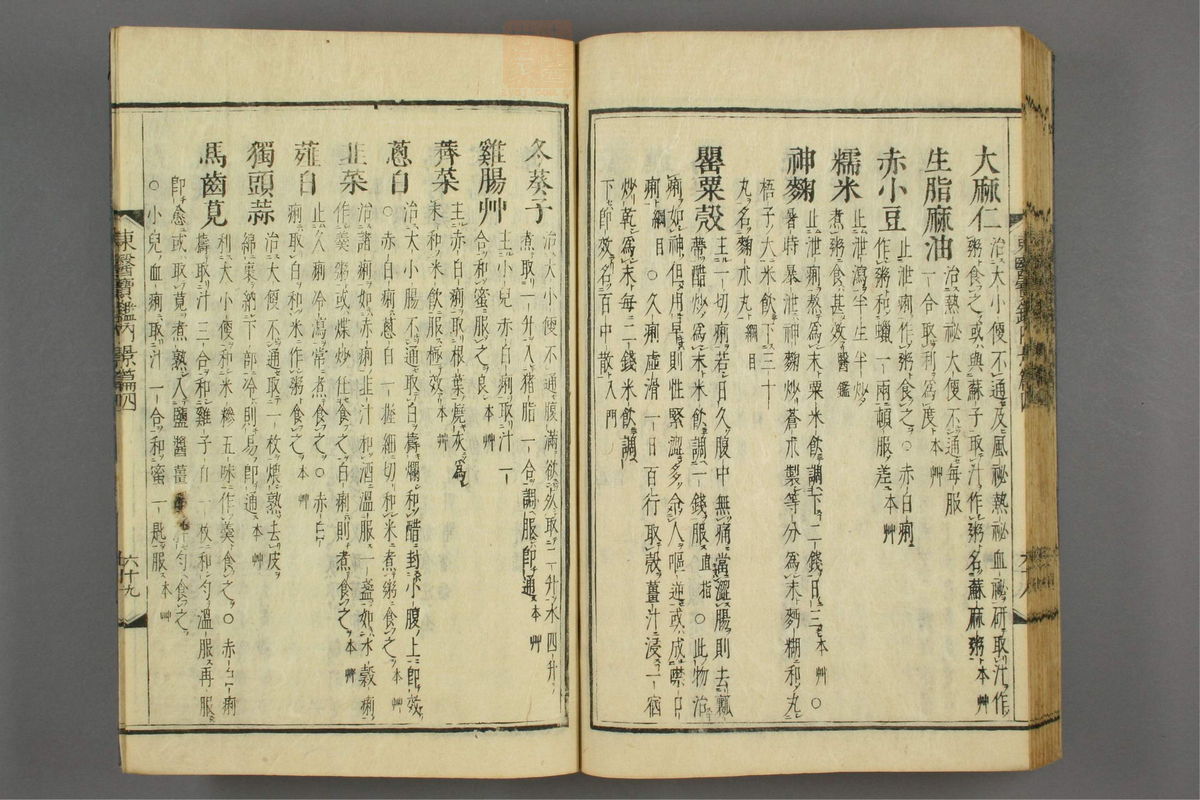 大麻仁
治大小便不通及風祕熱祕血祕研取汁作
粥食之或與蘇子取汁作粥名蘇麻粥本艸
生脂麻油
治熱祕大便不通每服
一合取利爲度本艸
赤小豆
止泄痢作粥食之○赤白痢
作粥和蠟一兩頓服差本艸
糯米
止泄瀉半生半炒
煮粥食甚效醫鑑
神麴
止泄痢熬爲末粟米飮調下二錢日三本艸○
暑時暴泄神麴炒蒼朮製等分爲末麪糊和丸
梧子大米飮下三十
丸名麴朮丸綱目
罌粟殼
主一切痢若日久腹中無痛當澁腸則去瓤
帶醋炒爲末米飮調一錢服直指○此物治
痢如神但用早則性緊澁多令人嘔逆或成噤口
痢綱目○久痢虛滑一日百行取殼薑汁浸一宿
炒乾爲末每二錢米飮調
下卽效名百中散入門
東醫寶鑑內景篇四
冬葵子
治大小便不通腹滿欲死取二升水四升
煮取一升入猪脂一合調服卽通本艸
雞腸艸
主小兒赤白痢取汁一
合和蜜服之良本艸
薺菜
主赤白痢取根葉燒灰爲
末和米飮服極效本艸
蔥白
治大小腸不通取白擣爛和醋封小腹上卽效
○赤白痢蔥白一握細切和米煮粥食之本艸
韭菜
治諸痢如赤痢韭汁和酒溫服一盞如水穀痢
作羹粥或煠炒任食之白痢則煮食之本艸
薤白
止久痢冷瀉常煮食之○赤白
痢取白和米作粥食之本艸
獨頭蒜
治大便不通取一枚煨熟去皮
綿裹納下部冷則易卽通本艸
馬齒莧
利大小便和米糝五味作羹食之○赤白痢
擣取汁三合和雞子白一枚和勻溫服再服
卽愈或取莧煮熟入鹽醬薑醋拌勻食之
○小兒血痢取汁一合和蜜一匙服本艸
六十九